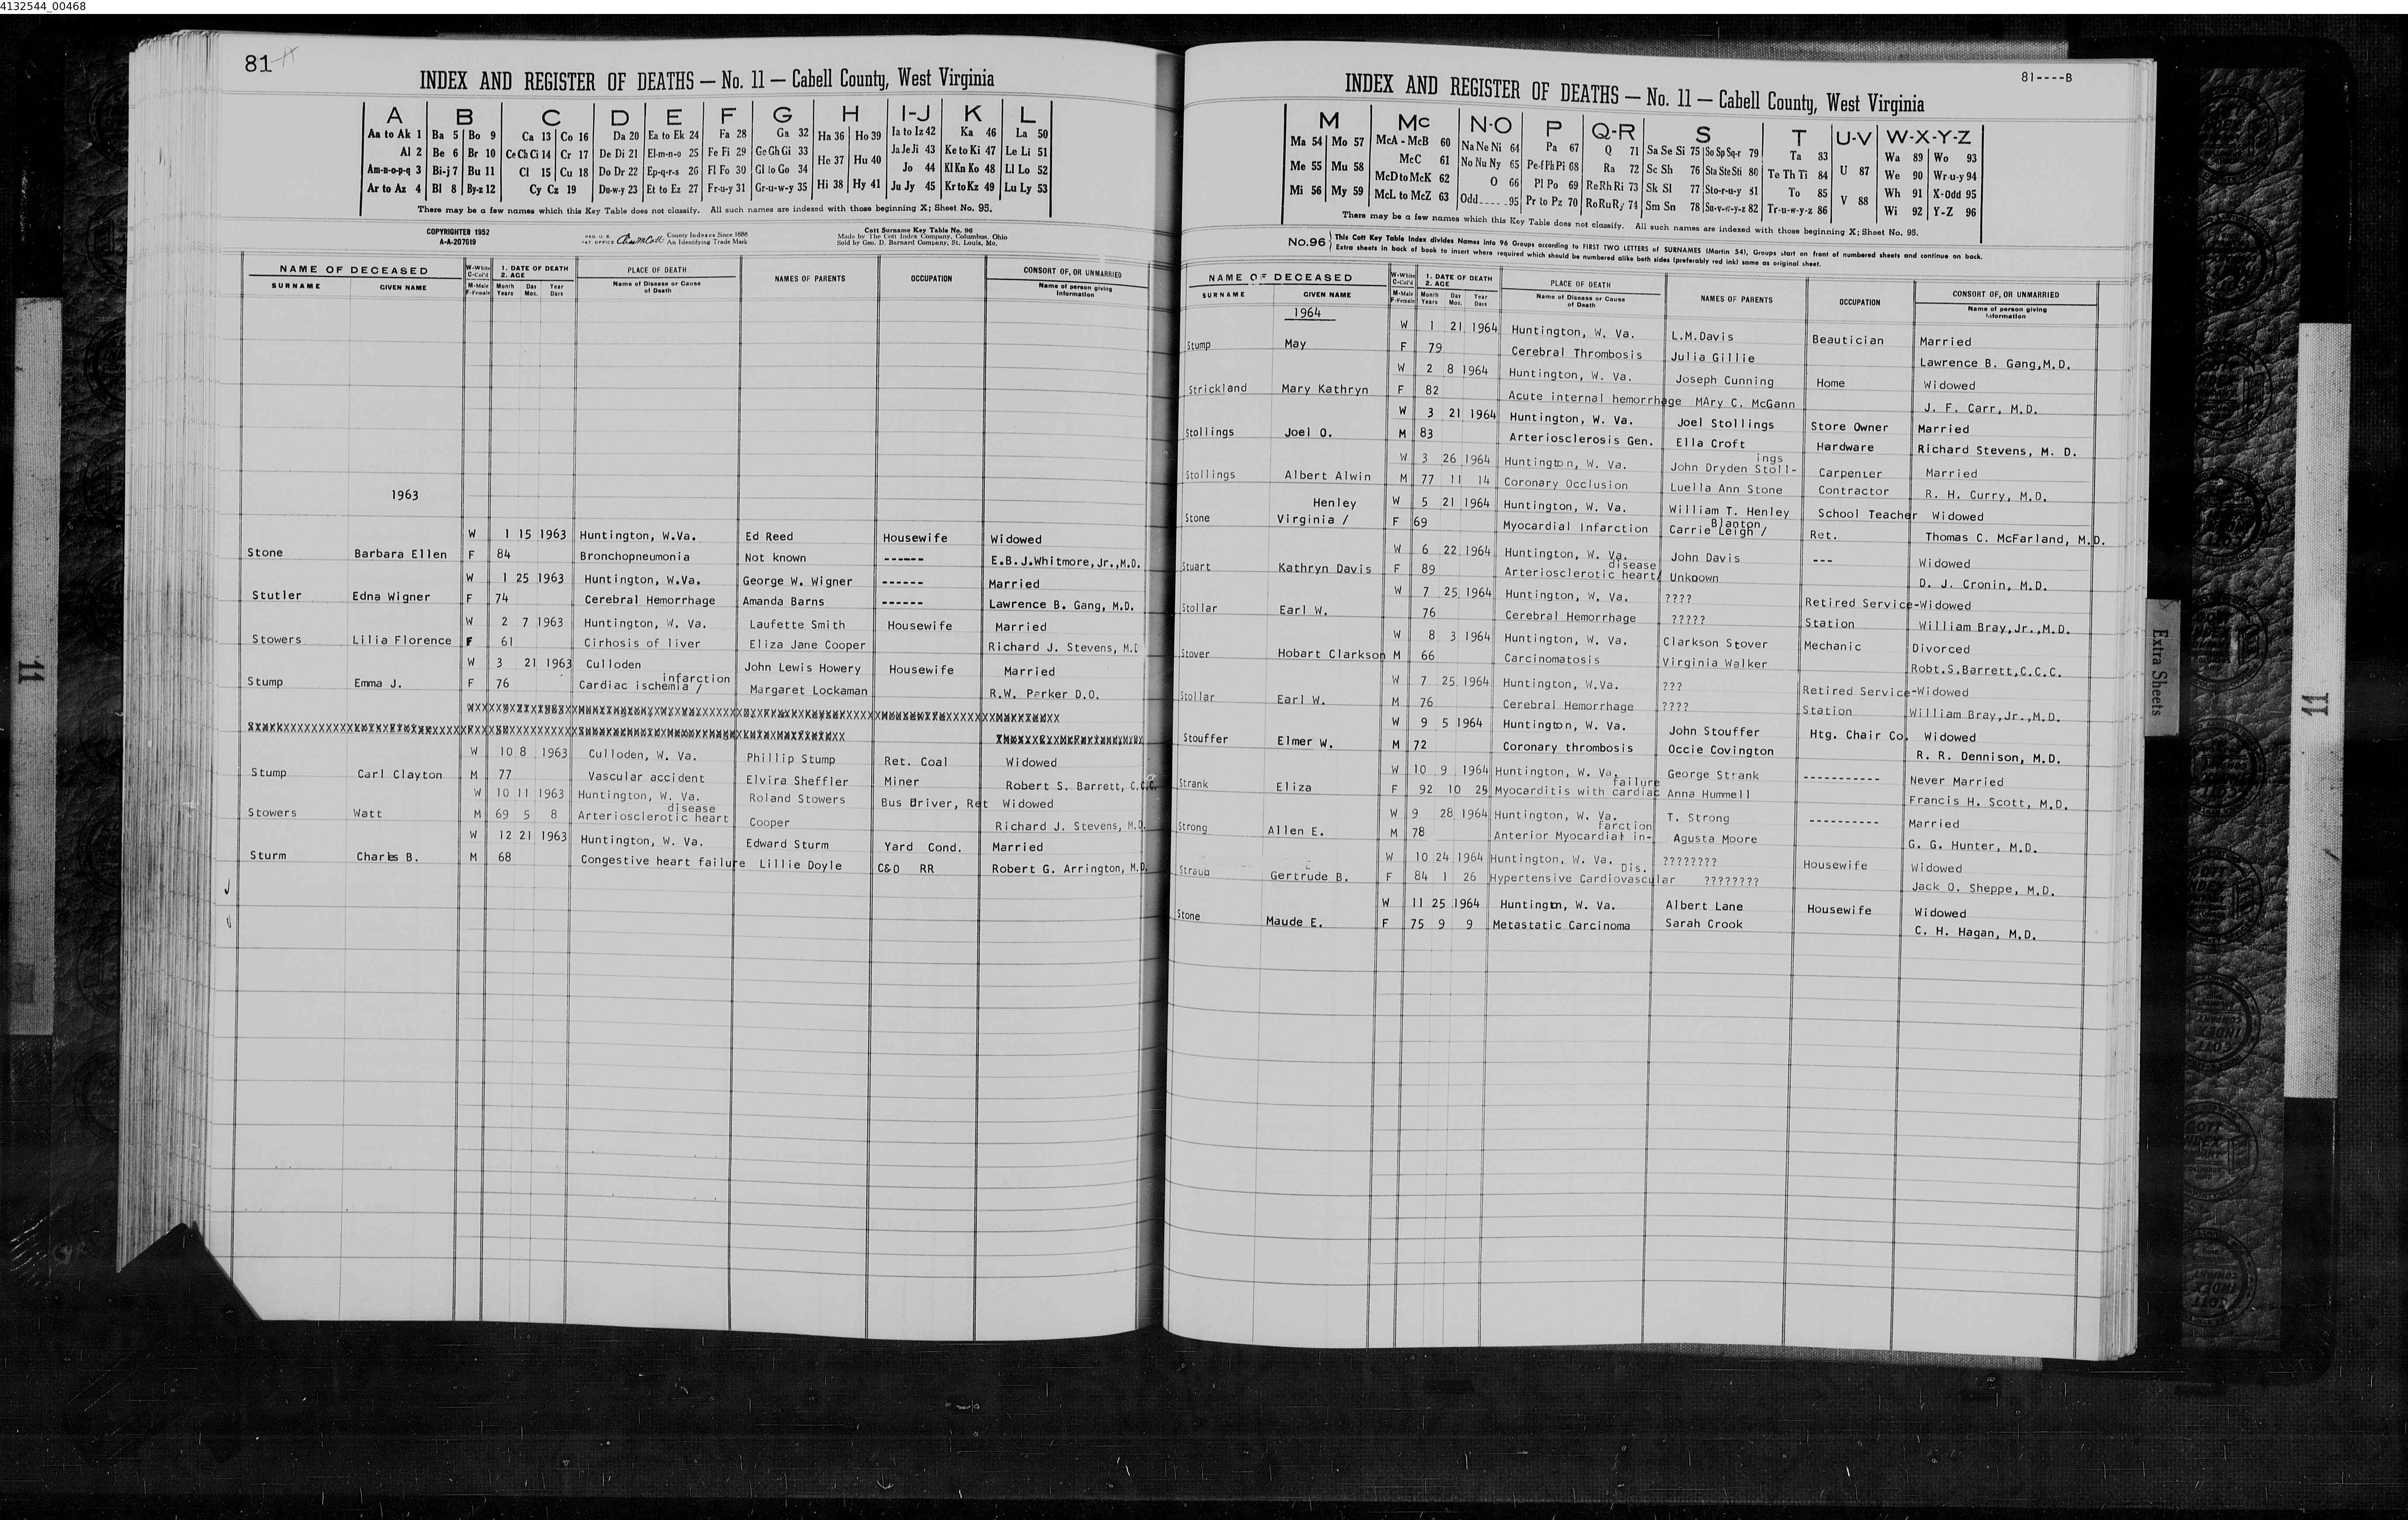 4132544_00468
81
INDEX AND REGISTER OF DEATHS — No. 11 — Cabell County, West Virginia
A B C D E F G H I-J K L
Aa to Ak 1 Ba 5 Bo 9 Ca 13 Co 16 Da 20 Ea to Ek 24 Fa 28 Ga 32 Ha 36 Ho 39 Ia to Iz 42 Ka 46 La 50
Al 2 Be 6 Br 10 Ce Ch Ci 14 Cr 17 De Di 21 El-m-n-o 25 Fe Fi 29 Ge Gh Gi 33 He 37 Hu 40 Ja Je Ji 43 Ke to Ki 47 Le Li 51
Am-n-o-p-q 3 Bi-j 7 Bu 11 Cl 15 Cu 18 Do Dr 22 Ep-q-r-s 26 Fl Fo 30 Gl to Go 34 Jo 44 Kl Kn Ko 48 Ll Lo 52
Ar to Az 4 Bl 8 By-z 12 Cy Cz 19 Du-w-y 23 Et to Ez 27 Fr-u-y 31 Gr-u-w-y 35 Hi 38 Hy 41 Ju Jy 45 Kr to Kz 49 Lu Ly 53
There may be a few names which this Key Table does not classify. All such names are indexed with those beginning X; Sheet No. 95.
COPYRIGHTED 1952
A-A-207619
County Indexes Since 1888
An Identifying Trade Mark
Cott Surname Key Table No. 96
Made by The Cott Index Company, Columbus, Ohio
Sold by Geo. D. Barnard Company, St. Louis, Mo.
NAME OF DECEASED W-White C-Col'd 1. DATE OF DEATH 2. AGE PLACE OF DEATH NAMES OF PARENTS OCCUPATION CONSORT OF, OR UNMARRIED
SURNAME GIVEN NAME M-Male F-Female Month Day Year Years Mos. Days Name of Disease or Cause of Death Name of person giving Information
1963
W 1 15 1963 Huntington, W.Va. Ed Reed Housewife Widowed
Stone Barbara Ellen F 84 Bronchopneumonia Not known ------ E.B.J.Whitmore,Jr.,M.D.
W 1 25 1963 Huntington, W.Va. George W. Wigner ------ Married
Stutler Edna Wigner F 74 Cerebral Hemorrhage Amanda Barns ------ Lawrence B. Gang, M.D.
W 2 7 1963 Huntington, W. Va. Laufette Smith Housewife Married
Stowers Lilia Florence F 61 Cirhosis of liver Eliza Jane Cooper Richard J. Stevens, M.D
W 3 21 1963 Culloden John Lewis Howery Housewife Married
infarction
Stump Emma J. F 76 Cardiac ischemia / Margaret Lockaman R.W. Parker D.O.
W 10 8 1963 Culloden, W. Va. Phillip Stump Ret. Coal Widowed
Stump Carl Clayton M 77 Vascular accident Elvira Sheffler Miner Robert S. Barrett, C.C.C.
W 10 11 1963 Huntington, W. Va. Roland Stowers Bus Driver, Ret Widowed
disease
Stowers Watt M 69 5 8 Arteriosclerotic heart Cooper Richard J. Stevens, M.D.
W 12 21 1963 Huntington, W. Va. Edward Sturm Yard Cond. Married
Sturm Charles B. M 68 Congestive heart failure Lillie Doyle C&O RR Robert G. Arrington, M.D.
81----B
INDEX AND REGISTER OF DEATHS — No. 11 — Cabell County, West Virginia
M Mc N-O P Q-R S T U-V W-X-Y-Z
Ma 54 Mo 57 McA - McB 60 Na Ne Ni 64 Pa 67 Q 71 Sa Se Si 75 So Sp Sq-r 79 Ta 83 U 87 Wa 89 Wo 93
Me 55 Mu 58 McC 61 No Nu Ny 65 Pe-f Ph Pi 68 Ra 72 Sc Sh 76 Sta Ste Sti 80 Te Th Ti 84 We 90 Wr-u-y 94
McD to McK 62 O 66 Pl Po 69 Re Rh Ri 73 Sk Sl 77 Sto-r-u-y 81 To 85 V 88 Wh 91 X-Odd 95
Mi 56 My 59 McL to McZ 63 Odd 95 Pr to Pz 70 Ro Ru Ry 74 Sm Sn 78 Su-v-w-y-z 82 Tr-u-w-y-z 86 Wi 92 Y-Z 96
There may be a few names which this Key Table does not classify. All such names are indexed with those beginning X; Sheet No. 95.
No.96 This Cott Key Table Index divides Names into 96 Groups according to FIRST TWO LETTERS of SURNAMES (Martin 54), Groups start on front of numbered sheets and continue on back.
Extra sheets in back of book to insert where required which should be numbered alike both sides (preferably red ink) same as original sheet.
NAME OF DECEASED W-White C-Col'd 1. DATE OF DEATH 2. AGE PLACE OF DEATH NAMES OF PARENTS OCCUPATION CONSORT OF, OR UNMARRIED
SURNAME GIVEN NAME M-Male F-Female Month Day Year Years Mos. Days Name of Disease or Cause of Death Name of person giving Information
1964
W 1 21 1964 Huntington, W. Va. L.M.Davis Beautician Married
Stump May F 79 Cerebral Thrombosis Julia Gillie Lawrence B. Gang,M.D.
W 2 8 1964 Huntington, W. Va. Joseph Cunning Home Widowed
Strickland Mary Kathryn F 82 Acute internal hemorrhage MAry C. McGann J. F. Carr, M.D.
W 3 21 1964 Huntington, W. Va. Joel Stollings Store Owner Married
Stollings Joel O. M 83 Arteriosclerosis Gen. Ella Croft Hardware Richard Stevens, M. D.
ings
W 3 26 1964 Huntington, W. Va. John Dryden Stoll- Carpenter Married
Stollings Albert Alwin M 77 11 14 Coronary Occlusion Luella Ann Stone Contractor R. H. Curry, M.D.
Henley W 5 21 1964 Huntington, W. Va. William T. Henley School Teacher Widowed
Blanton
Stone Virginia / F 69 Myocardial Infarction Carrie Leigh / Ret. Thomas C. McFarland, M.D.
W 6 22 1964 Huntington, W. Va. John Davis --- Widowed
disease
Stuart Kathryn Davis F 89 Arteriosclerotic heart/ Unknown D. J. Cronin, M.D.
W 7 25 1964 Huntington, W. Va. ???? Retired Service-Widowed
Stollar Earl W. 76 Cerebral Hemorrhage ????? Station William Bray,Jr.,M.D.
W 8 3 1964 Huntington, W. Va. Clarkson Stover Mechanic Divorced
Stover Hobart Clarkson M 66 Carcinomatosis Virginia Walker Robt.S.Barrett,C.C.C.
W 7 25 1964 Huntington, W.Va. ??? Retired Service-Widowed
Stollar Earl W. M 76 Cerebral Hemorrhage ???? Station William Bray,Jr.,M.D.
W 9 5 1964 Huntington, W. Va. John Stouffer Htg. Chair Co. Widowed
Stouffer Elmer W. M 72 Coronary thrombosis Occie Covington R. R. Dennison, M.D.
W 10 9 1964 Huntington, W. Va. George Strank ----------- Never Married
failure
Strank Eliza F 92 10 25 Myocarditis with cardiac Anna Hummell Francis H. Scott, M.D.
W 9 28 1964 Huntington, W. Va. T. Strong ---------- Married
farction
Strong Allen E. M 78 Anterior Myocardial in- Agusta Moore G. G. Hunter, M.D.
W 10 24 1964 Huntington, W. Va. ???????? Housewife Widowed
Dis.
Straub Gertrude B. F 84 1 26 Hypertensive Cardiovascular ???????? Jack O. Sheppe, M.D.
W 11 25 1964 Huntington, W. Va. Albert Lane Housewife Widowed
Stone Maude E. F 75 9 9 Metastatic Carcinoma Sarah Crook C. H. Hagan, M.D.
Extra Sheets
11
11